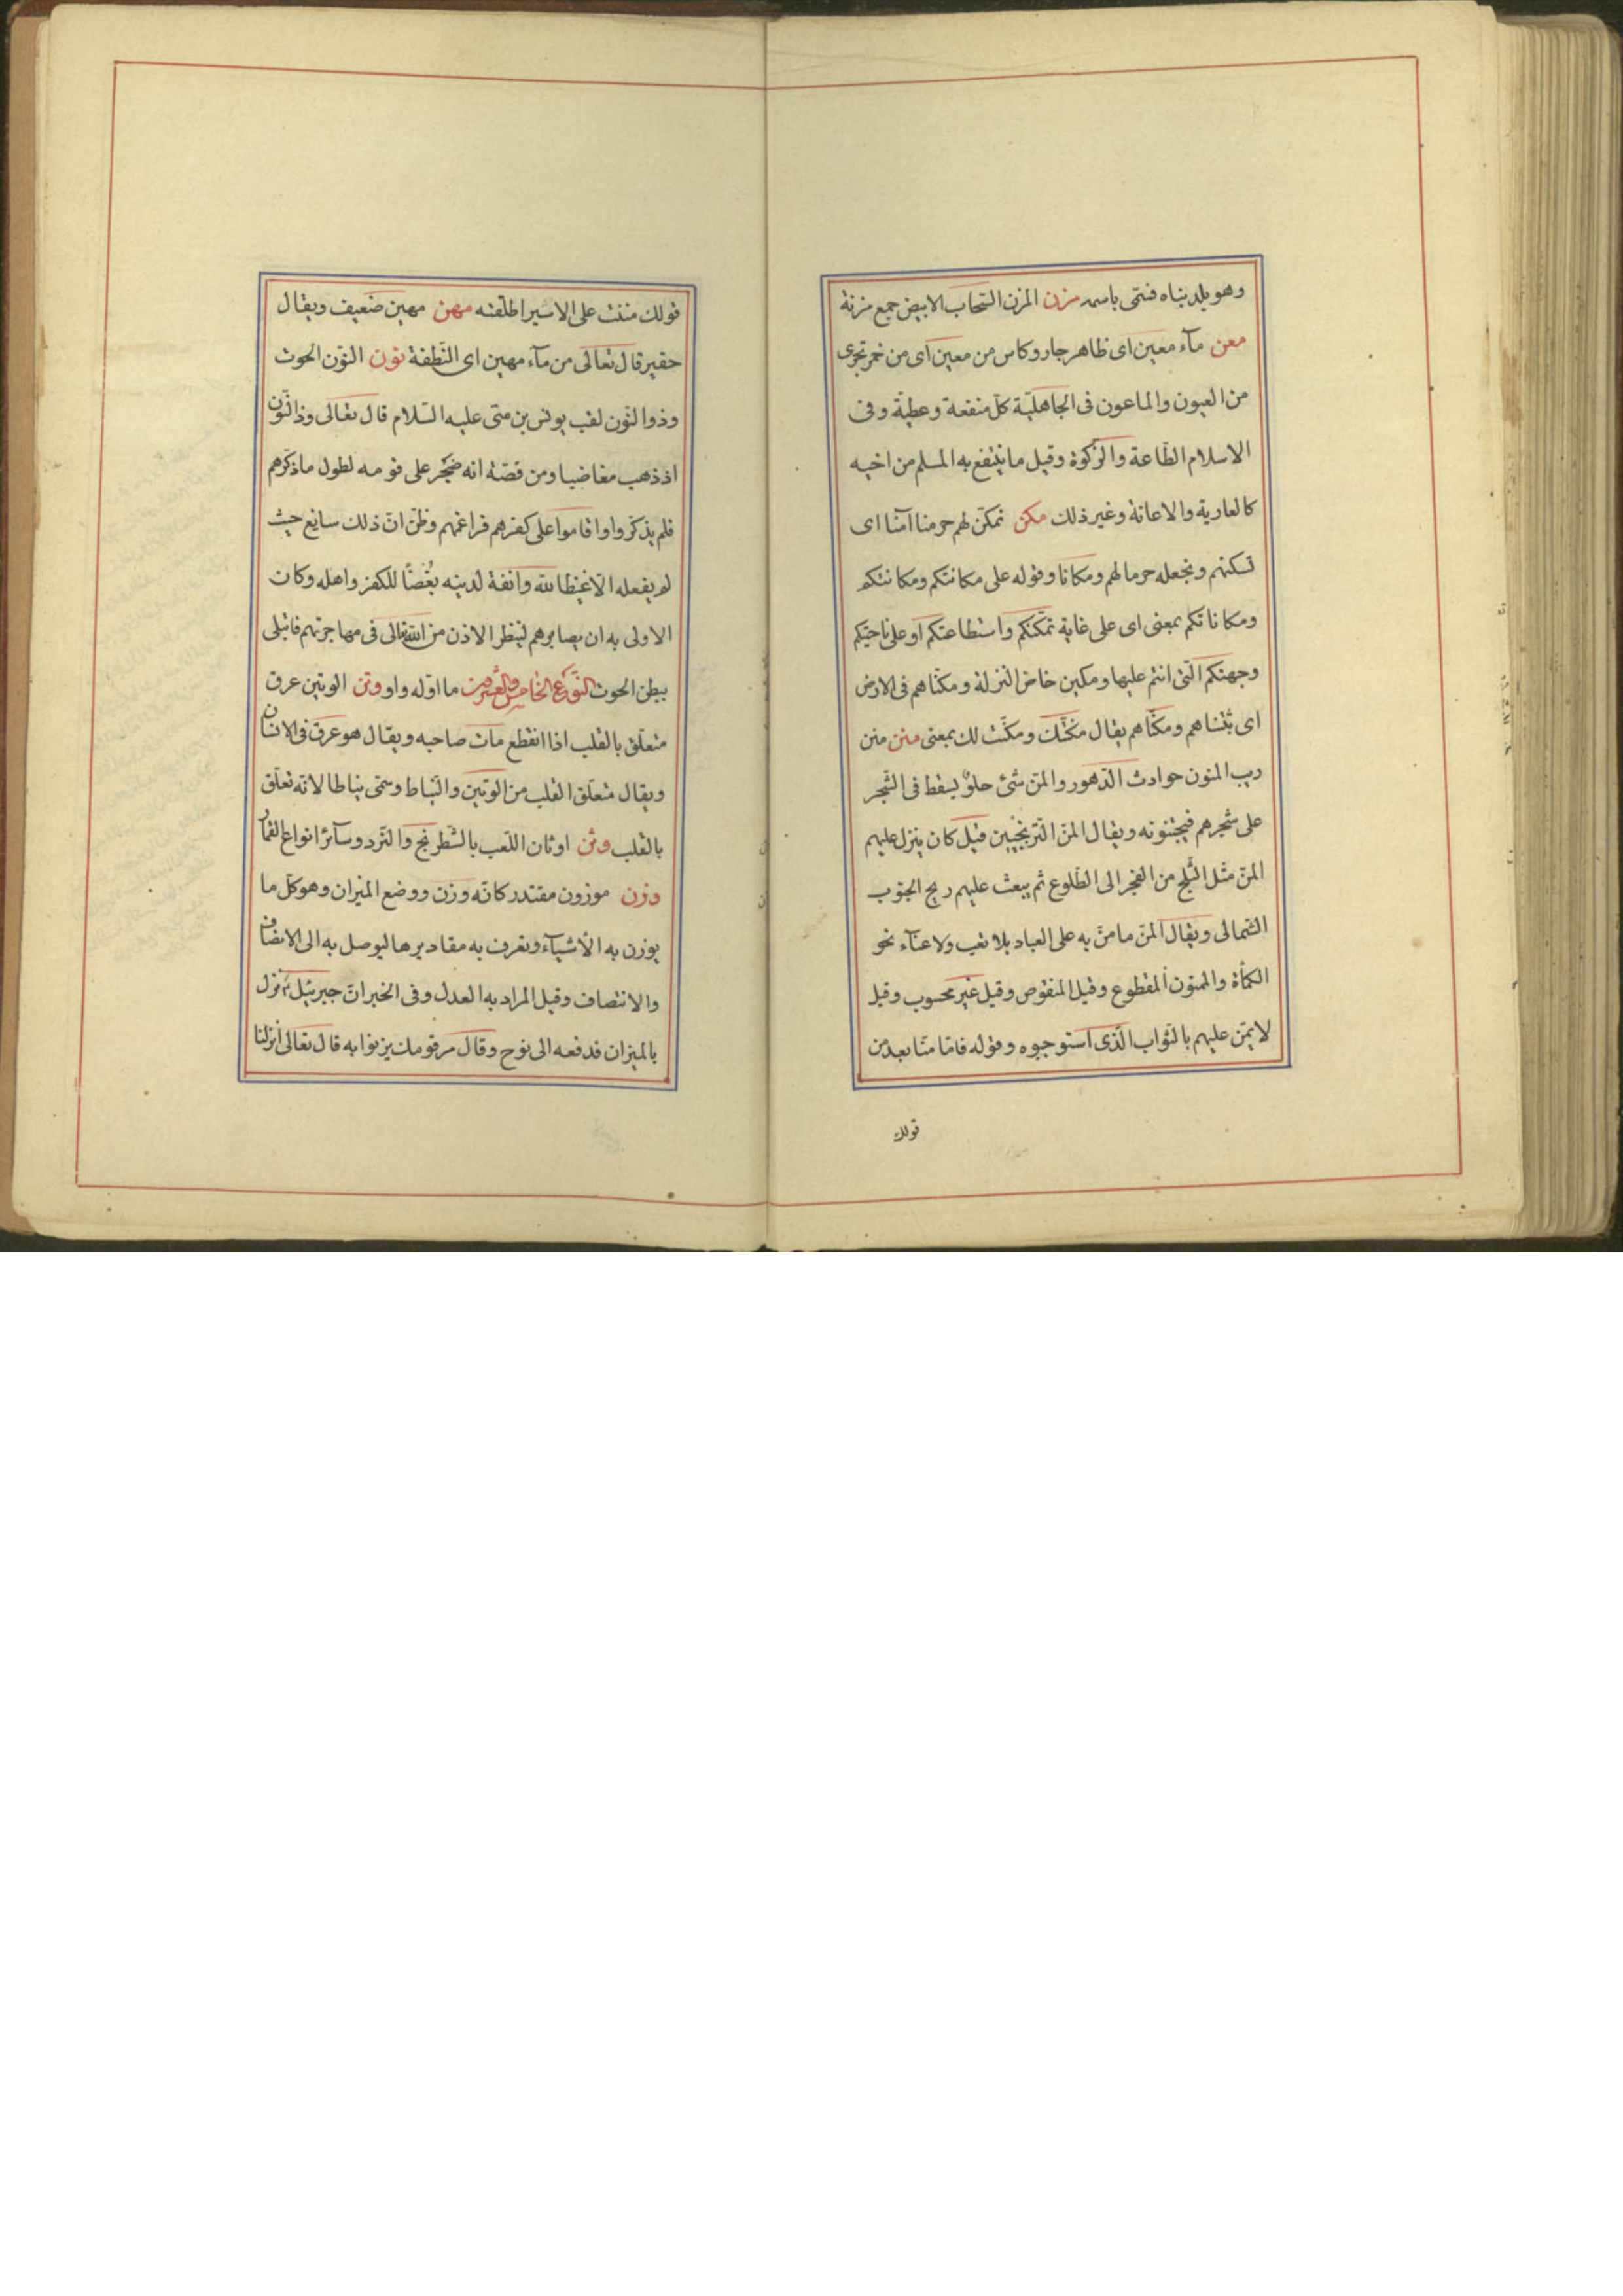 وهو بلد بناه فسمّى باسمه مزن المزن السّحاب الابيض جمع مزنة
معن مآء معين اى ظاهر جار وكاس من معين اى من خمر تجرى
من العيون والماعون فى الجاهليّة كلّ منفعة وعطيّة وفى
الاسلام الطّاعة والزّكوة وقيل ما ينتفع به المسلم من اخيه
كالعارية والاعانة وغير ذلك مكن نمكّن لهم حرمنا آمنا اى
نسكنهم ونجعله حرما لهم ومكانا وقوله على مكانتكم ومكانتكم
ومكاناتكم بمعنى اى على غاية تمكّنكم واستطاعتكم او على ناحيتكم
وجهتكم الّتى انتم عليها ومكين خاصّ المنزلة ومكّنّاهم فى الارض
اى ثبّتناهم ومكّنّاهم يقال مكّنتك ومكّنت لك بمعنى منن منن
ريب المنون حوادث الدّهور والمنّ شئ حلوٌ يسقط فى الشّجر
على شجرهم فيجتنونه ويقال المنّ التّرنجبين قيل كان ينزل عليهم
المنّ مثل الثّلج من الفجر الى الطّلوع ثم يبعث عليهم ريح الجنوب
الشّمالى ويقال المنّ ما منّ به على العباد بلا تعب ولا عنآء نحو
الكمأة والممنون المقطوع وقيل المنقوص وقيل غير محسوب وقيل
لا يمنّ عليهم بالثّواب الّذى استوجبوه وقوله فامّا منّا بعد من
قولك
قولك مننت على الاسير اطلقته مهن مهين ضعيف ويقال
حقير قال تعالى من مآء مهين اى النّطفة نون النّون الحوت
وذوا لنّون لقب يونس بن متى عليه السّلام قال تعالى وذا النّون
اذ ذهب مغاضبا ومن قصّته انه ضجر على قومه لطول ما ذكّرهم
فلم يذكّروا واقاموا على كفرهم فراغمهم وظنّ انّ ذلك سايغ حيث
لم يفعله الّا غيظا لله وانفة لدينه بُغضًا للكفر واهله وكان
الاولى به ان يصابرهم لينظر الاذن من الله تعالى فى مهاجرتهم فابتلى
ببطن الحوت النّوع الخامس والعشرون ما اوّله واو وتن الوتين عرق
متعلّق بالقلب اذا انقطع مات صاحبه ويقال هو عرق فى الانسان
ويقال متعلّق القلب من الوتين والنّياط وسمّى نياطا لانّه تعلّق
بالقلب وثن اوثان اللّعب بالشّطرنج والنّرد وسآئر انواع القمار
وزن موزون مقتدر كانّه وزن ووضع الميزان وهو كلّ ما
يوزن به الأشيآء وتعرف به مقاديرها ليوصل به الى الانصاف
والانتصاف وقيل المراد به العدل وفى الخبر انّ جبرئيل ع نزل
بالميزان فدفعه الى نوح وقال مر قومك يزنوا به قال تعالى انزلنا